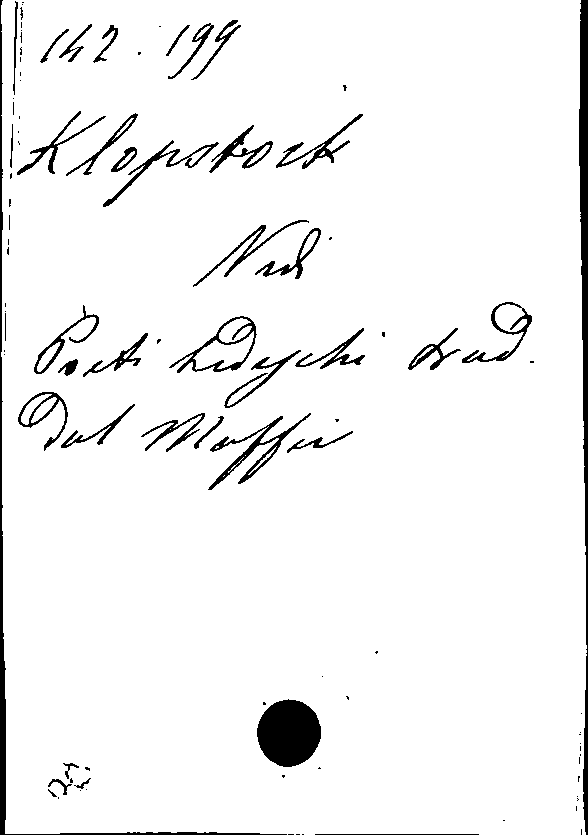 142. 199
Klopstock
Vedi
Poeti tedeschi trad.
Dal Maffei